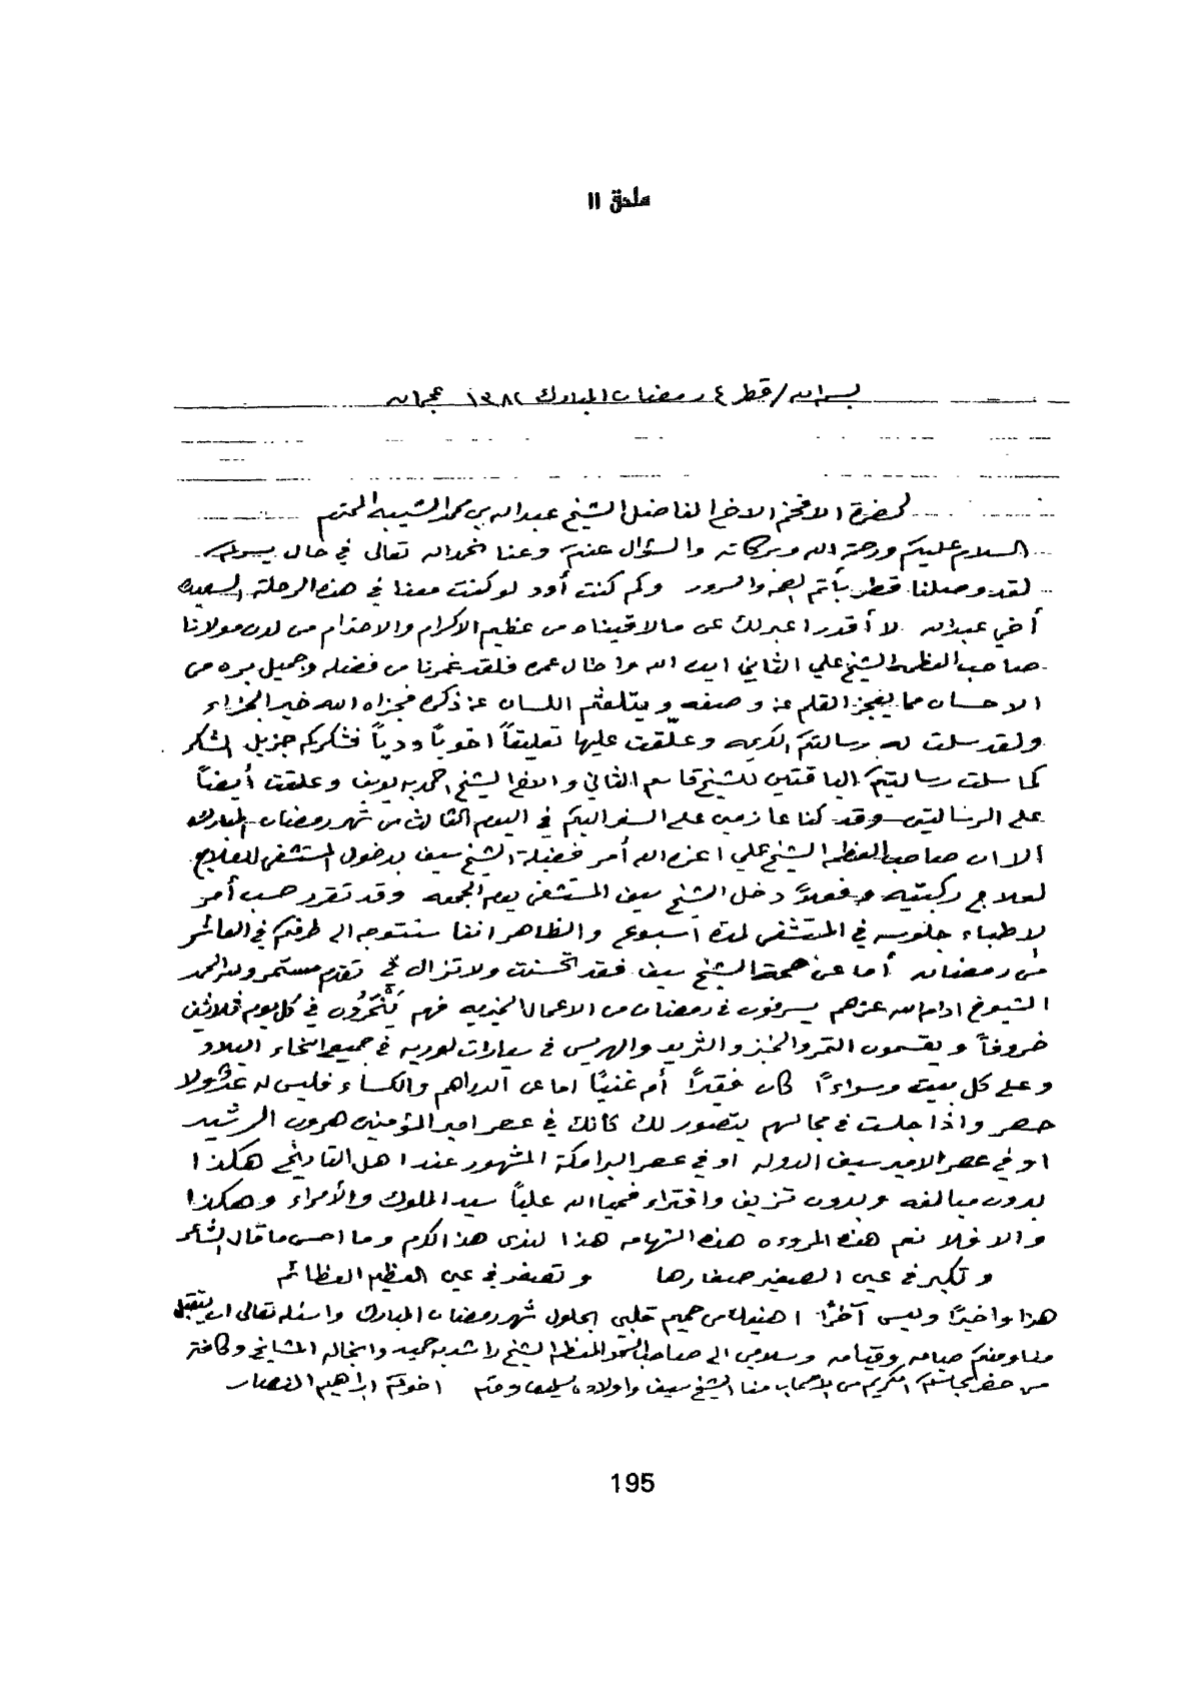 ملحق 11
بسم الله / قطر ٤ رمضان المبارك ١٣٨٢ عجمان
لحضرة الافخم الاخ الفاضل الشيخ عبدالله بن محمد الشيبه المحترم
السلام عليكم ورحمة الله وبركاته والسؤال عنكم وعنا نحمد الله تعالى في حال يسركم
لقد وصلنا قطر بأتم الصحه والسرور وكم كنت أود لو كنت معنا في هذه الرحلة السعيده
أخي عبدالله لا أقدر اعبر لك عن ما لاقيناه من عظيم الاكرام والاحترام من لدن مولانا
صاحب العظمه الشيخ علي الثاني ايده الله واطال عمره فلقد غمرنا من فضله وجميل بره من
الاحسان مما يعجز القلم عن وصفه ويتلعثم اللسان عن ذكره فجزاه الله خير الجزاء
ولقد سلت له رسالتكم الكريمه وعلّقت عليها تعليقاً اخوياً ودياً فشكركم جزيل الشكر
كما سلت رسالتيكم الباقتين للشيخ قاسم الثاني والاخ الشيخ احمد بن يوسف وعلقت أيضاً
على الرسالتين وقد كنا عازمين على السفر اليكم في اليوم الثالث من شهر رمضان المبارك
ألا ان صاحب العظمه الشيخ علي اعزه الله أمر فضيلة الشيخ سيف بدخول المستشفى للعلاج
لعلاج ركبتيه وفعلاً دخل الشيخ سيف المستشفى يوم الجمعه وقد تقرر حسب أمر
الاطباء جلوسه في المستشفى لمدة اسبوع والظاهر اننا سنتوجه الى طرفكم في العاشر
من رمضان أما عن صحة الشيخ سيف فقد تحسنت ولا تزال في تقدم مستمر ولله الحمد
الشيوخ ادام الله عزهم يسرفون في رمضان من الاعمال الخيريه فهم يَنْحَرُون في كل يوم ثلاثين
خروفاً ويقسمون التمر والخبز والثريد والهريس في سيارات لوريه في جميع انحاء البلاد
وعلى كل بيت وسواءً كان فقيراً أم غنياً اما عن الدراهم والكساء فليس له عدٌّ ولا
حصر واذا جلست في مجالسهم يتصور لك كانك في عصر امير المؤمنين هرون الرشيد
او في عصر الامير سيف الدوله او في عصر البرامكة المشهور عند اهل التاريخ هكذا
بدون مبالغه وبدون تزيف وافتراء فحيا الله علياً سيد الملوك والأمراء وهكذا
والا فلا نعم هذه المروءه هذه الشهامه هذا الندى هذا الكرم وما احسن ما قال الشاعر
وتكبر في عين الصغير صغارها وتصغر في عين العظيم العظائم
هذا واخيراً وليس آخراً اهنيك من صميم قلبي بحلول شهر رمضان المبارك واسئله تعالى ان يتقبل
منا ومنكم صيامه وقيامه وسلامي الى صاحب السمو المعظم الشيخ راشد بن حميد وانجاله المشايخ وكافة
من حضر مجلسكم الكريم من الاصحاب منا الشيخ سيف واولاده يسلمون ودمتم اخوكم ابراهيم النصار
195